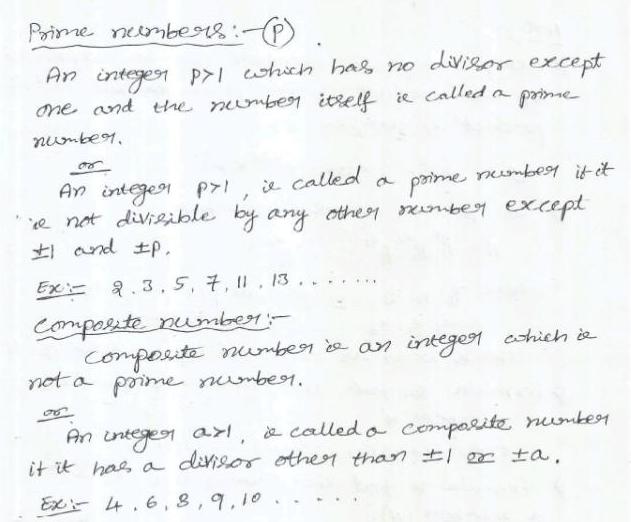 Prime numbers:- (P)
An integer p>1 which has no divisor except
one and the number itself is called a prime
number.
or
An integer p>1, is called a prime number if it
is not divisible by any other number except
±1 and ±p.
Ex:- 2, 3, 5, 7, 11, 13 ........
Composite number:-
Composite number is an integer which is
not a prime number.
or
An integer a>1, is called a composite number
if it has a divisor other than ±1 or ±a.
Ex:- 4, 6, 8, 9, 10 ......